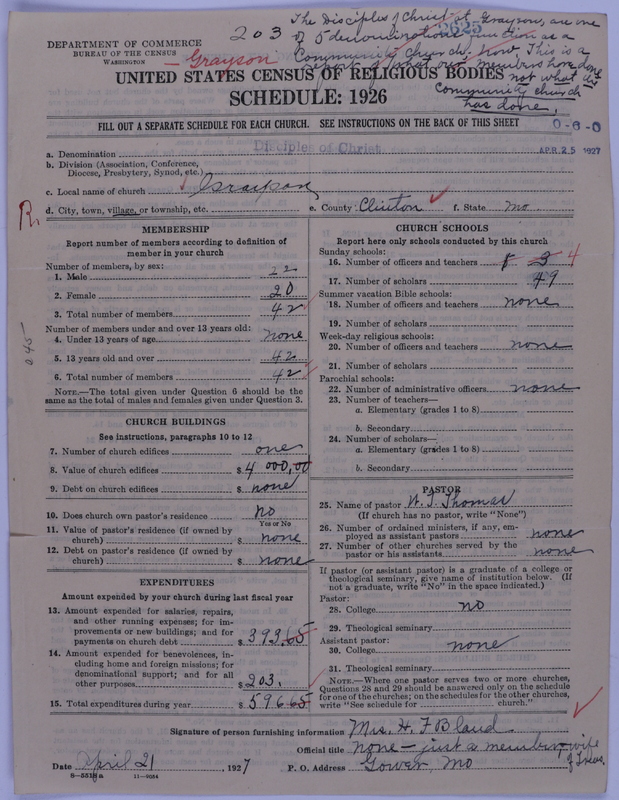 The Disciples of Christ at Grayson, are one
203 of 5 denominations as a
Community Church now. This is a
report of what our members have done
not what the
Community church
has done.
2625
DEPARTMENT OF COMMERCE
BUREAU OF THE CENSUS
WASHINGTON
Grayson
UNITED STATES CENSUS OF RELIGIOUS BODIES
SCHEDULE: 1926
FILL OUT A SEPARATE SCHEDULE FOR EACH CHURCH. SEE INSTRUCTIONS ON THE BACK OF THIS SHEET
0-6-0
APR 25 1927
a. Denomination Disciples of Christ
b. Division (Association, Conference,
Diocese, Presbytery, Synod, etc.)
c. Local name of church Grayson
d. City, town, village, or township, etc. e. County Clinton f. State Mo
MEMBERSHIP
Report number of members according to definition of
member in your church
Number of members, by sex:
1. Male 22
2. Female 20
3. Total number of members 42
Number of members under and over 13 years old:
4. Under 13 years of age none
5. 13 years old and over 42
6. Total number of members 42
NOTE.—The total given under Question 6 should be the
same as the total of males and females given under Question 3.
CHURCH BUILDINGS
See instructions, paragraphs 10 to 12
7. Number of church edifices one
8. Value of church edifices $ 4 000,00
9. Debt on church edifices $ none
10. Does church own pastor's residence No
Yes or No
11. Value of pastor's residence (if owned by
church) $ none
12. Debt on pastor's residence (if owned by
church) $ none
EXPENDITURES
Amount expended by your church during last fiscal year
13. Amount expended for salaries, repairs,
and other running expenses; for im-
provements or new buildings; and for
payments on church debt $ 393.65
14. Amount expended for benevolences, in-
cluding home and foreign missions; for
denominational support; and for all
other purposes $ 203.
15. Total expenditures during year $ 596.65
CHURCH SCHOOLS
Report here only schools conducted by this church
Sunday schools:
16. Number of officers and teachers 8 3 4
17. Number of scholars 49
Summer vacation Bible schools:
18. Number of officers and teachers none
19. Number of scholars
Week-day religious schools:
20. Number of officers and teachers none
21. Number of scholars
Parochial schools:
22. Number of administrative officers none
23. Number of teachers—
a. Elementary (grades 1 to 8)
b. Secondary
24. Number of scholars—
a. Elementary (grades 1 to 8)
b. Secondary
PASTOR
25. Name of pastor W. T. Thomas
(If church has no pastor, write "None")
26. Number of ordained ministers, if any, em-
ployed as assistant pastors none
27. Number of other churches served by the
pastor or his assistants none
If pastor (or assistant pastor) is a graduate of a college or
theological seminary, give name of institution below. (If
not a graduate, write "No" in the space indicated.)
Pastor:
28. College no
29. Theological seminary
Assistant pastor:
30. College none
31. Theological seminary
NOTE.—Where one pastor serves two or more churches,
Questions 28 and 29 should be answered only on the schedule
for one of the churches; on the schedules for the other churches,
write "See schedule for church."
Signature of person furnishing information Mrs. H. F Bland
Official title none - just a member, wife
of Treas.
Date April 21 1927 P. O. Address Gower, Mo
8—5518a 11—9054